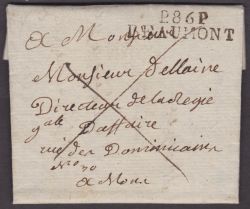 P.86.P
BEAUMONT
A Monsieur
Monsieur Dellaine
Directeur de la Regie
g.ale Daffaire
rue des Dominicains
N.ro 70
a Mons